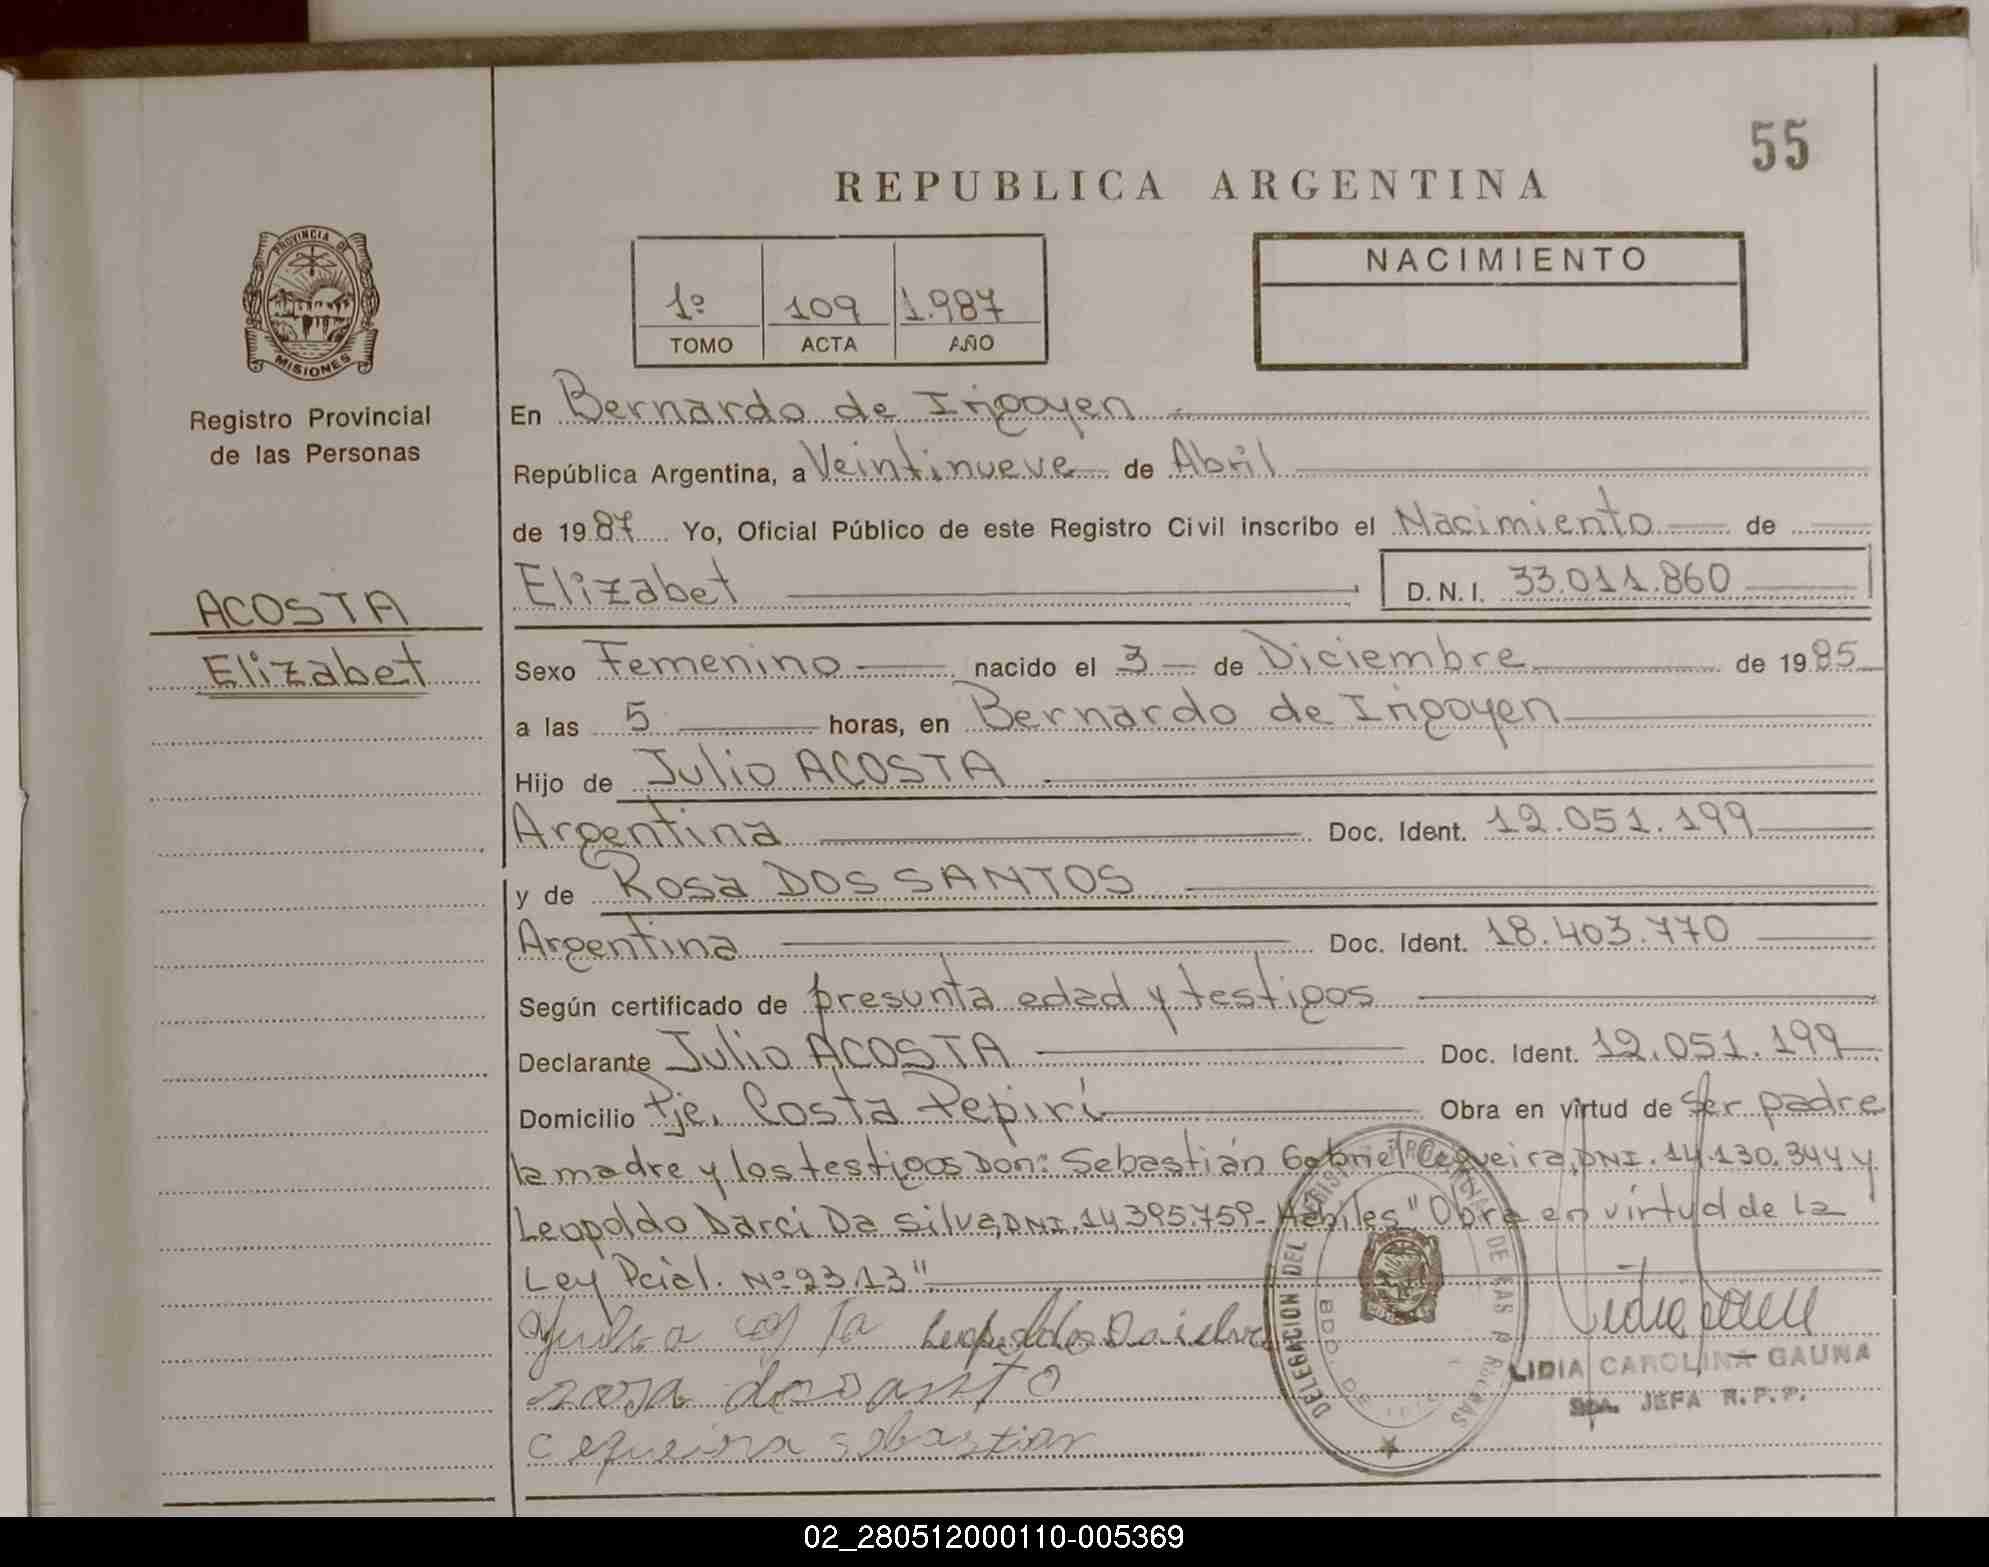 55
REPUBLICA ARGENTINA
PROVINCIA DE
MISIONES
Registro Provincial
de las Personas
ACOSTA
Elizabet
1º 109 1.987
TOMO ACTA AÑO
NACIMIENTO
En Bernardo de Irigoyen
República Argentina, a Veintinueve de Abril
de 1987 Yo, Oficial Público de este Registro Civil inscribo el Nacimiento de
Elizabet D.N.I. 33.011.860
Sexo Femenino nacido el 3 de Diciembre de 1985
a las 5 horas, en Bernardo de Irigoyen
Hijo de Julio ACOSTA
Argentina Doc. Ident. 12.051.199
y de Rosa DOS SANTOS
Argentina Doc. Ident. 18.403.770
Según certificado de presunta edad y testigos
Declarante Julio ACOSTA Doc. Ident. 12.051.199
Domicilio Pje. Costa Pepirí Obra en virtud de Ser padre
la madre y los testigos Don: Sebastián Gabriel Cequeira, DNI. 14.130.344 y
Leopoldo Darci Da Silva, DNI. 14.395.759- Hábiles "Obra en virtud de la
Ley Pcial. Nº 23.13"
rosa dosanto
cequeira sebastian
DELEGACION DEL REGISTRO PROVINCIAL DE LAS PERSONAS
BDO. DE
LIDIA CAROLINA GAUNA
JEFA R.P.P.
02_280512000110-005369